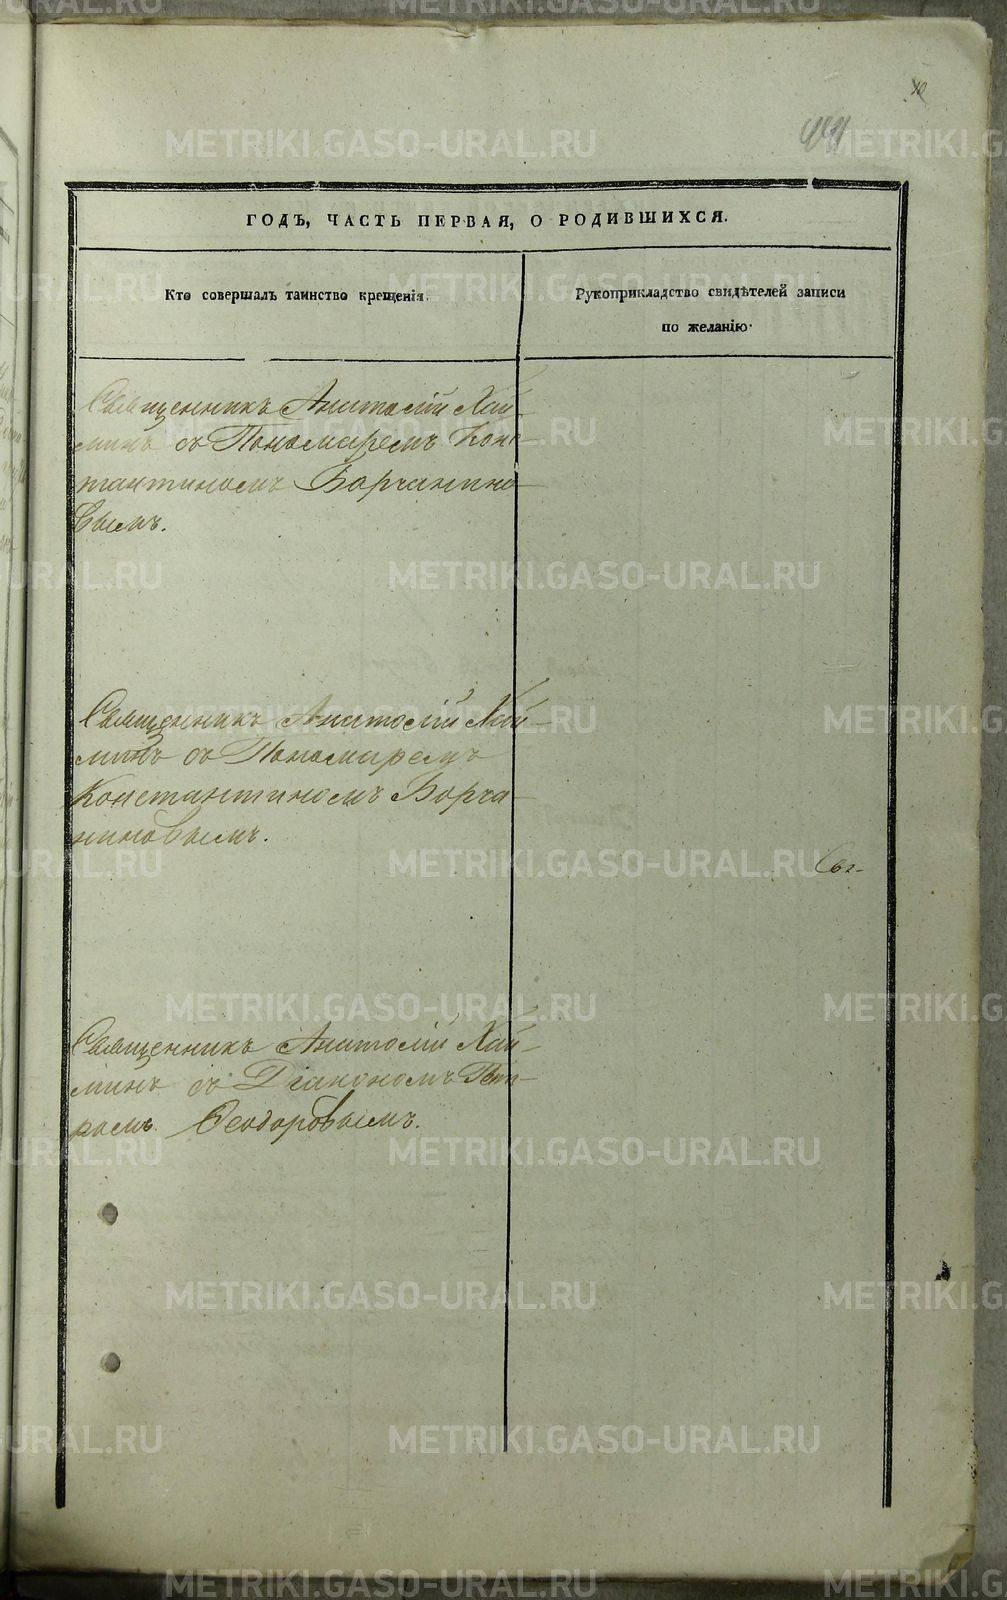 10
441
ГОДЪ, ЧАСТЬ ПЕРВАЯ, О РОДИВШИХСЯ.
Кто совершалъ таинство крещенія.
Рукоприкладство свидѣтелей записи
по желанію.
Священникъ Анатолій Хай-
минъ съ Пономаремъ Конс-
тантиномъ Борчанино-
вымъ.
Священникъ Анатолій Хай-
минъ съ Пономаремъ
Константиномъ Борча-
ниновымъ.
Священникъ Анатолій Хай-
минъ съ Діакономъ Пет-
ромъ Ѳеодоровымъ.
METRIKI.GASO-URAL.RU